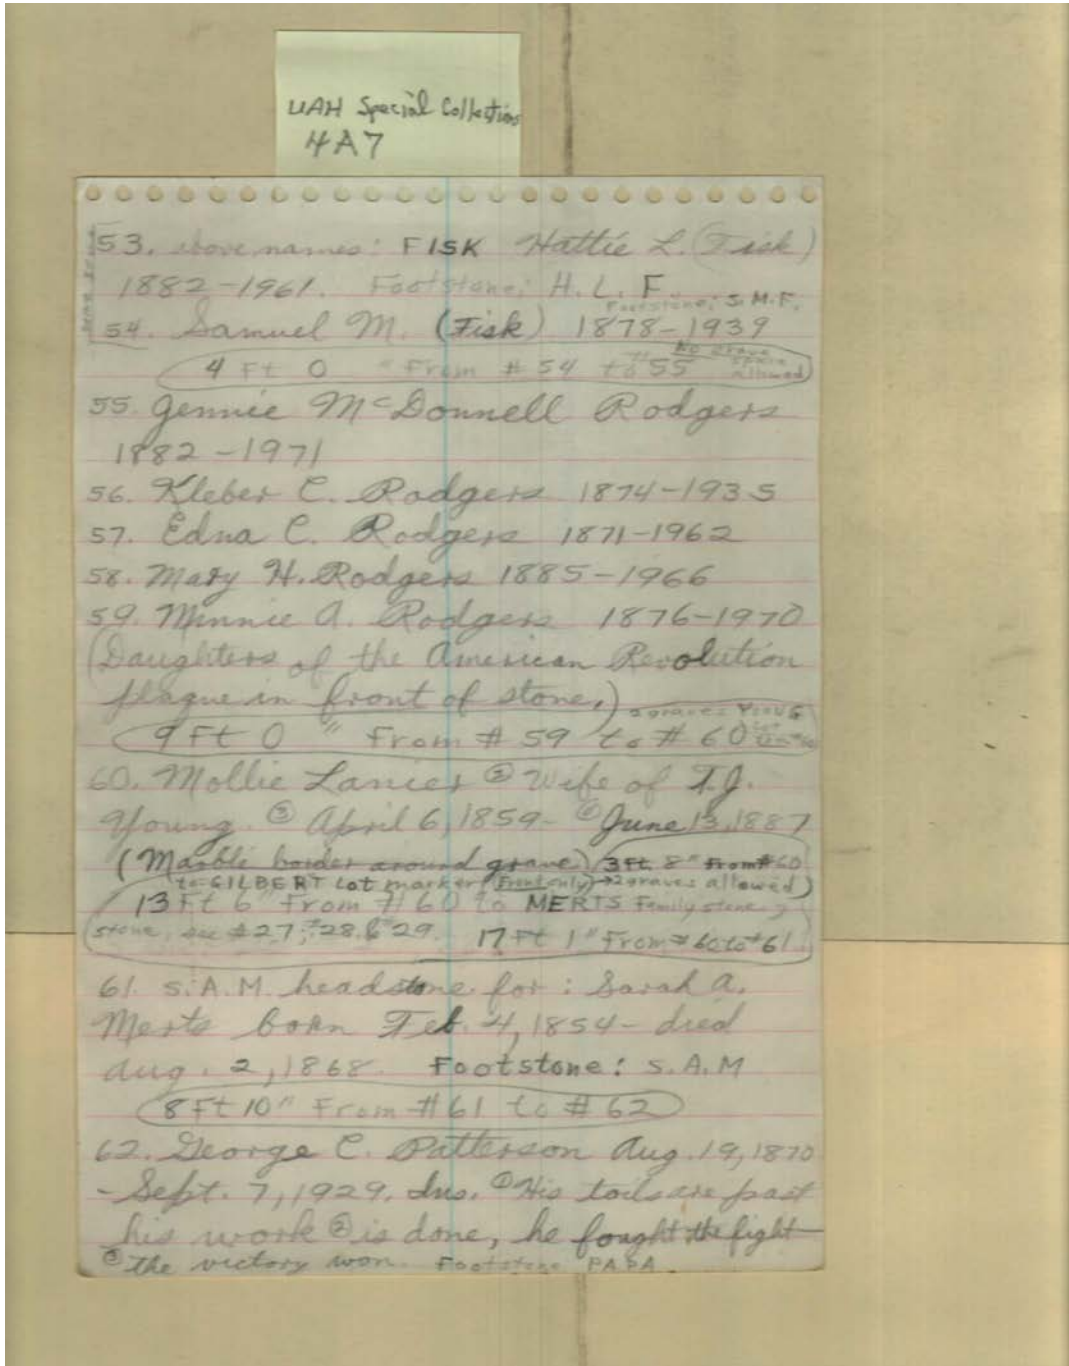 UAH Special Collections
4A7
53. above names: FISK Hattie L. (Fisk)
1882-1961. Footstone: H. L. F.
Footstone: S. M. F.
54. Samuel M. (Fisk) 1878-1939
No grave space allowed
4 Ft 0 " From # 54 to # 55
55. Jennie McDonnell Rodgers
1882-1971
56. Kleber C. Rodgers 1874-1935
57. Edna C. Rodgers 1871-1962
58. Mary H. Rodgers 1885-1966
59. Minnie A. Rodgers 1876-1970
(Daughters of the American Revolution
plaque in front of stone.)
2 graves YOUNG
9 Ft 0 " From # 59 to # 60
60. Mollie Lanier ② Wife of T.J.
Young. ③ April 6, 1859- ④ June 13, 1887
(Marble border around grave) 3 Ft. 8" From #60
to GILBERT Lot marker (Front only) → 2 graves allowed)
13 Ft 6" From # 60 to MERTS Family stone
stone, see #27, #28, & 29. 17 Ft 1" From # 60 to #61
61. S.A.M. headstone for: Sarah A.
Merts born Feb. 4, 1854- died
Aug. 2, 1868. Footstone: S.A.M
8 Ft 10" From # 61 to # 62
62. George C. Patterson Aug. 19, 1870
- Sept. 7, 1929. Ins. ① His toils are past
his work ② is done, he fought the fight
③ the victory won. Footstone PAPA